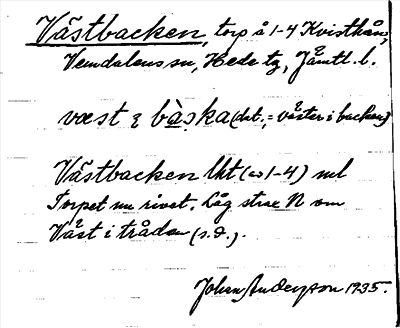 Västbacken, torp å 1-4 Kvisthån,
Vemdalens sn, Hede tg, Jämtl. l.
væst i bàska (dat., = väster i backen)
Västbacken lht (av 1-4) nel
Torpet nu rivet. Låg strax N om
Väst i trådan (s.d.).
Johan Anderzon 1935.